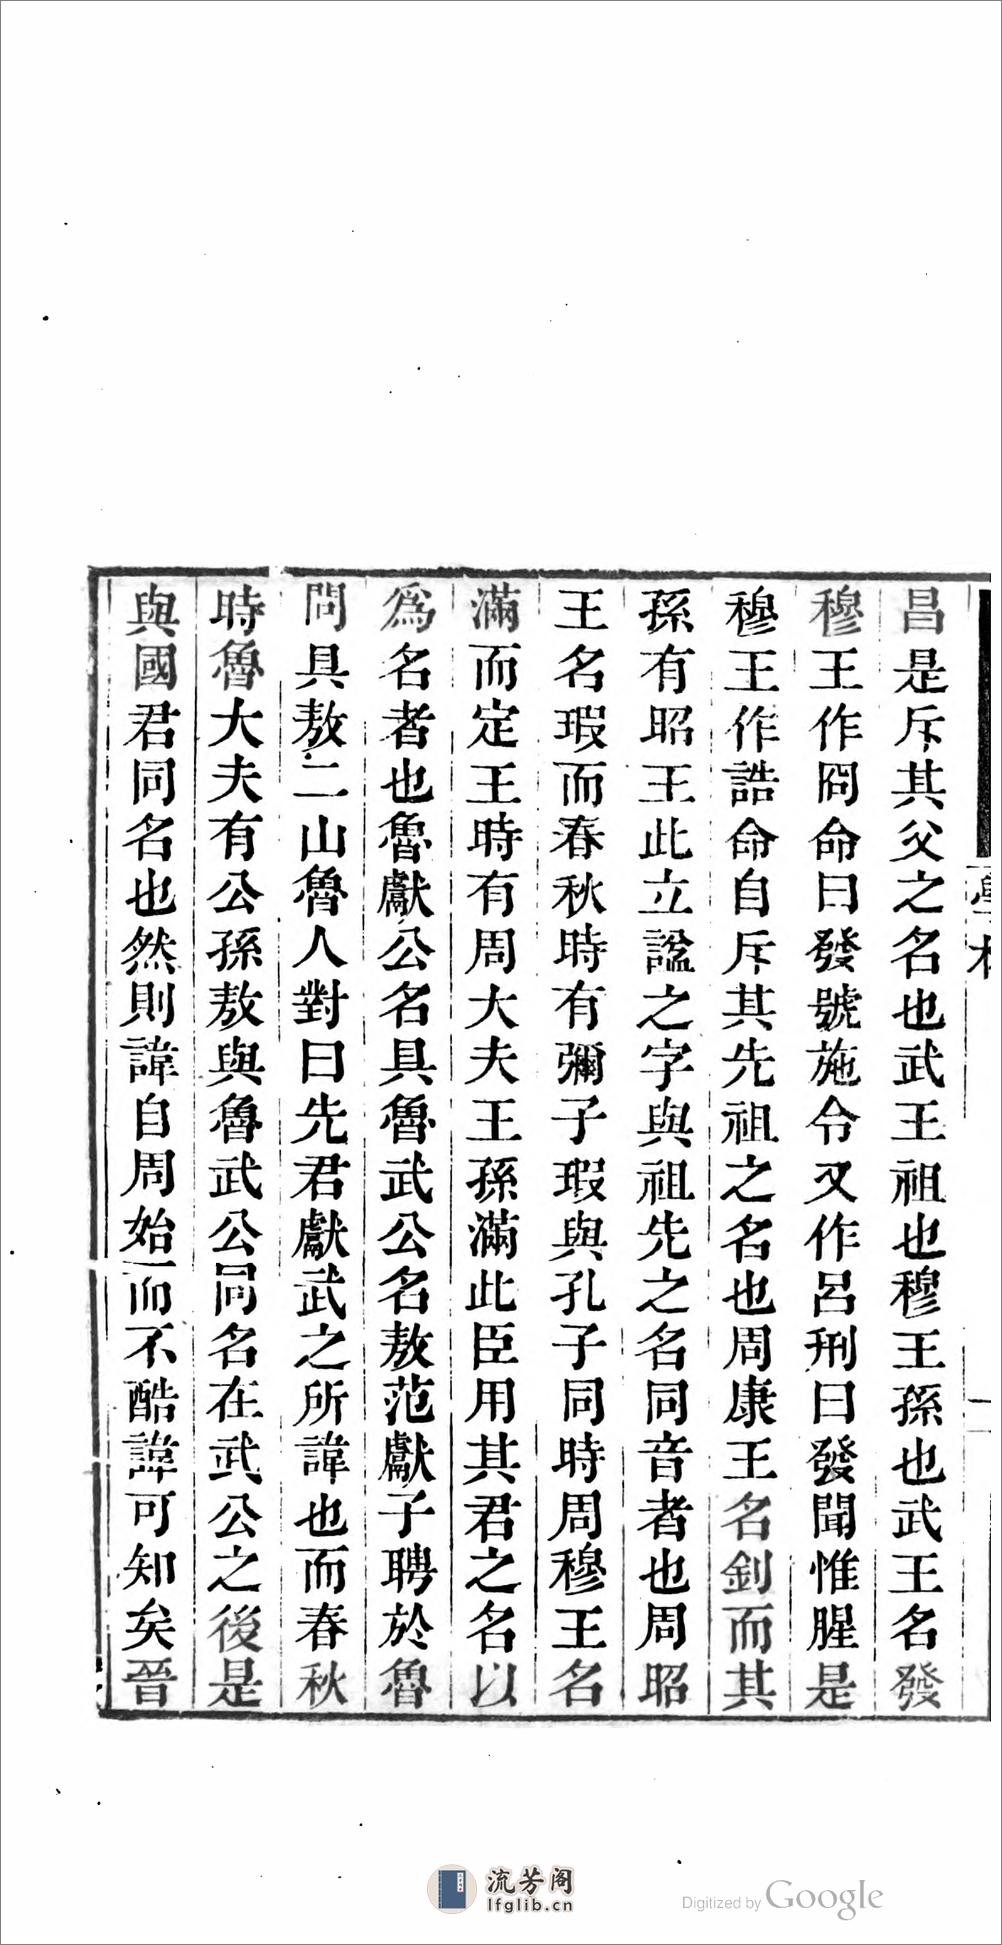 昌是斥其父之名也武王祖也穆王孫也武王名發
穆王作冏命曰發號施令又作呂刑曰發聞惟腥是
穆王作誥命自斥其先祖之名也周康王名釗而其
孫有昭王此立諡之字與祖先之名同音者也周昭
王名瑕而春秋時有彌子瑕與孔子同時周穆王名
滿而定王時有周大夫王孫滿此臣用其君之名以
爲名者也魯獻公名具魯武公名敖范獻子聘於魯
問具敖二山魯人對曰先君獻武之所諱也而春秋
時魯大夫有公孫敖與魯武公同名在武公之後是
與國君同名也然則諱自周始而不酷諱可知矣晉
流芳阁
lfglib.cn
Digitized by Google